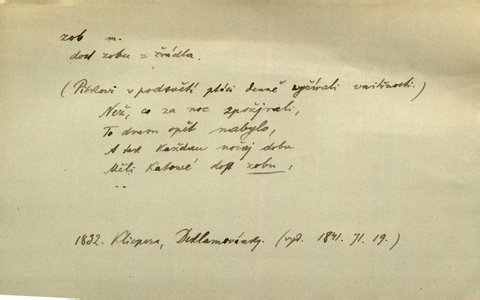 zob m.
dost zobu = žrádla.
( v podsvětí ptáci denně vyžírali vnitřnosti.)
Než, co za noc zpožírali,
To dnem opět nabylo,
A tak každau nočnj dobu
Měli katowé dost zobu,
..
1832. Klicpera, Deklamovánky. (vyd. 1841. 71. 19.)